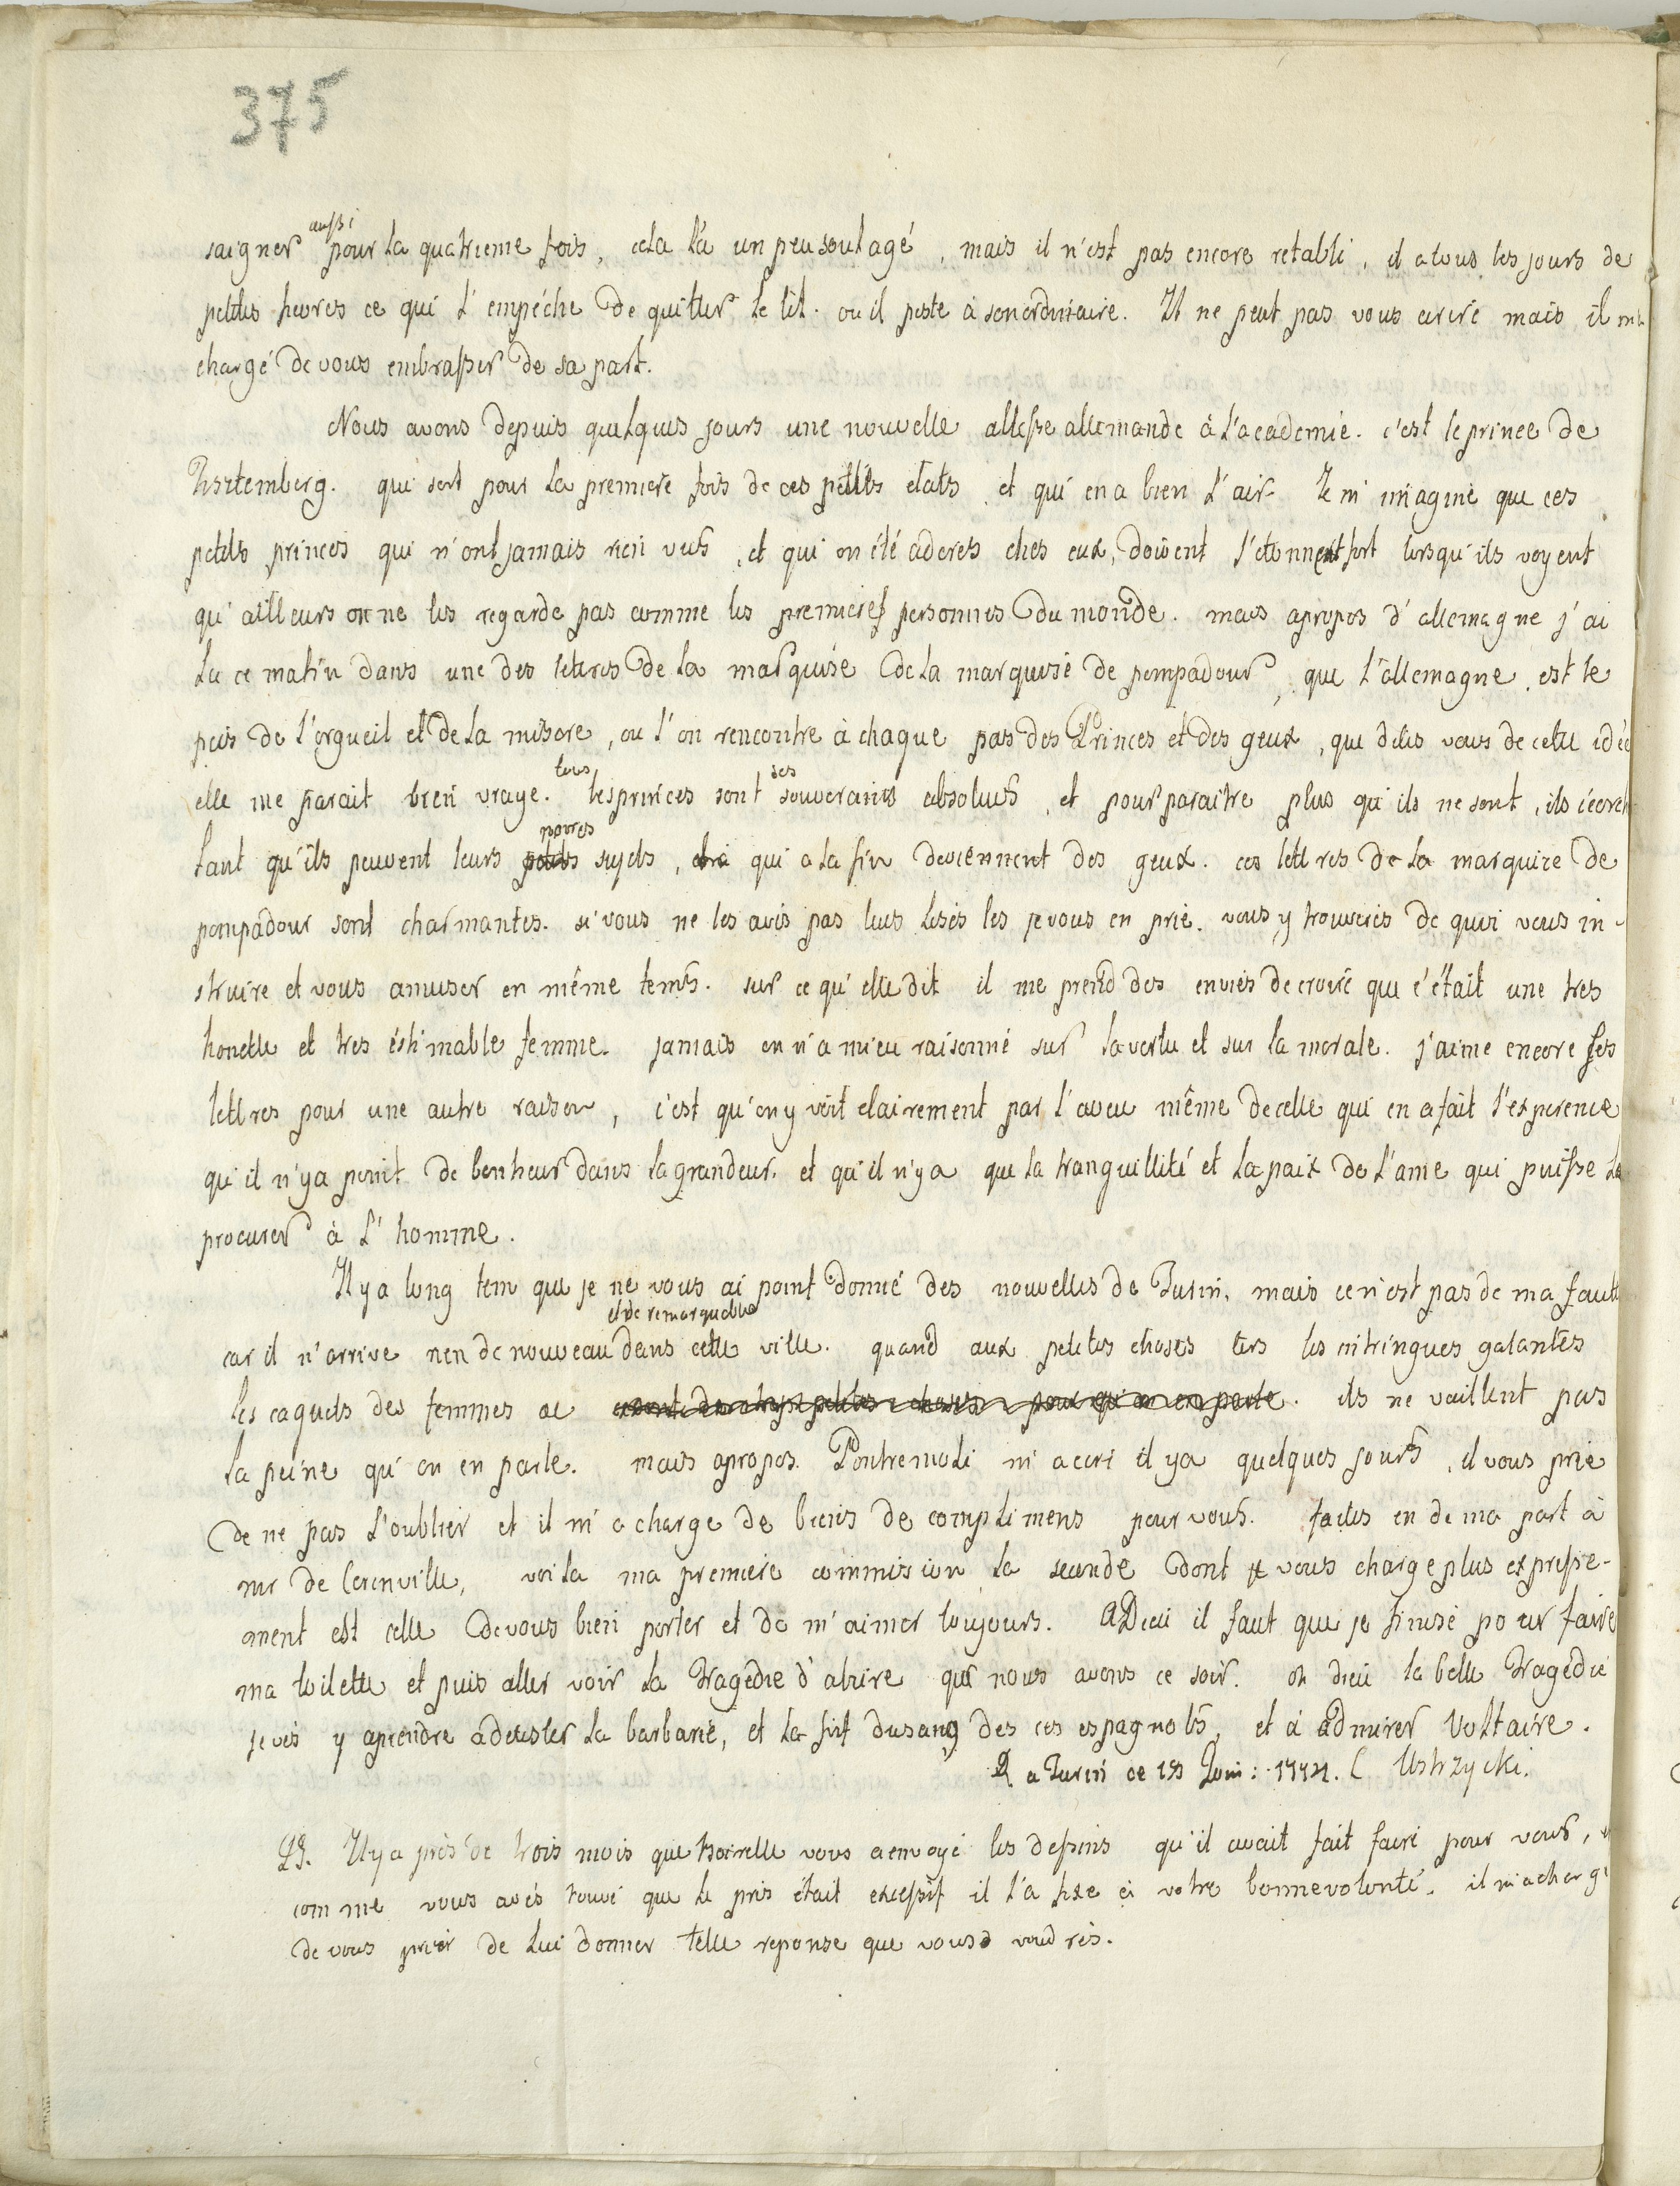 375
aussi
saigner pour la quatrieme fois, cela l'a un peu soulagé, mais il n'est pas encore retabli, il a tous les jours de
petites fievres ce qui l'empéche de quitter le lit. ou il peste à son ordinaire. Il ne peut pas vous ecrire mais il m'a
chargé de vous embrasser de sa part.
Nous avons depuis quelques jours une nouvelle altesse allemande à l'academie. c'est le prince de
qui sort pour la premiere fois de ces petits etats, et qui en a bien l'air. Je m'imagine que ces
petits princes qui n'ont jamais rien vus, et qui on été adorés ches eux, doivent s'etonner fort lorsqu'ils voyent
qu'ailleurs on ne les regarde pas comme les premieres personnes du monde. mais apropos d'allemagne j'ai
lu ce matin dans une des lettres de la marquise de la marquise de pompadour, que l'allemagne est le
pais de l'orgueil et de la misere, ou l'on rencontre à chaque pas des Princes et des geux, que dites vous de cette idée
tous ses
elle me parait bien vraye. les princes sont souverains absolus, et pour paraitre plus qu'ils ne sont, ils écorch
povres
tant qu'ils peuvent leurs petits sujets, qui a la fin deviennent des geux. ces lettres de la marquise de
pompadour sont charmantes. si vous ne les avés pas lues lisés les je vous en prie. vous y trouverés de quoi vous in-
struire et vous amuser en même tems. sur ce qu'elle dit il me prend des envies de croire que c'était une tres
honette et tres éstimable femme. jamais on n'a mieu raisonné sur la vertu et sur la morale. j'aime encore ses
lettres pour une autre raison, c'est qu'on y voit clairement par l'aveu même de celle qui en a fait l'experence
qu'il n'y a point de bonheur dans la grandeur. et qu'il n'y a que la tranquillité et la paix de l'ame qui puisse le
procurer à l'homme.
Il y a long tem que je ne vous ai point donné des nouvelles de Turin, mais ce n'est pas de ma faute
et de remarquable
car il n'arrive rien de nouveau dans cette ville. quand aux petites choses les intringues galantes
les caquets des femmes sont des trop petites choses pour qu'on en parle. ils ne vaillent pas
la peine qu'on en parle. mais apropos. Pontremoli m'a ecri il y a quelques jours, il vous prie
de ne pas l'oublier et il m'a charge de biens de complimens pour vous. faites en de ma part à
mr de Cerenville, voila ma premiere commission la seconde dont je vous charge plus expresse-
ment est celle de vous bien porter et de m'aimer toujours. aDieu il faut que je finise pour faire
ma toilette et puis aller voir la tragedie d'alzire que nous avons ce soir. oh dieu la belle tragedie
je vès y aprendre a detester la barbarie, et la soif du sang des ces espagnols, et à admirer Voltaire.
a Turin ce Juin: Ustrzycki.
Il y a près de trois mois que vous a envoyé les dessins qu'il avait fait faire pour vous,
comme vous avés trouvé que le pris était excessif il l'a fixé à votre bonne volonté. il m'a chargé
de vous prier de lui donner telle reponse que vous voudrés.